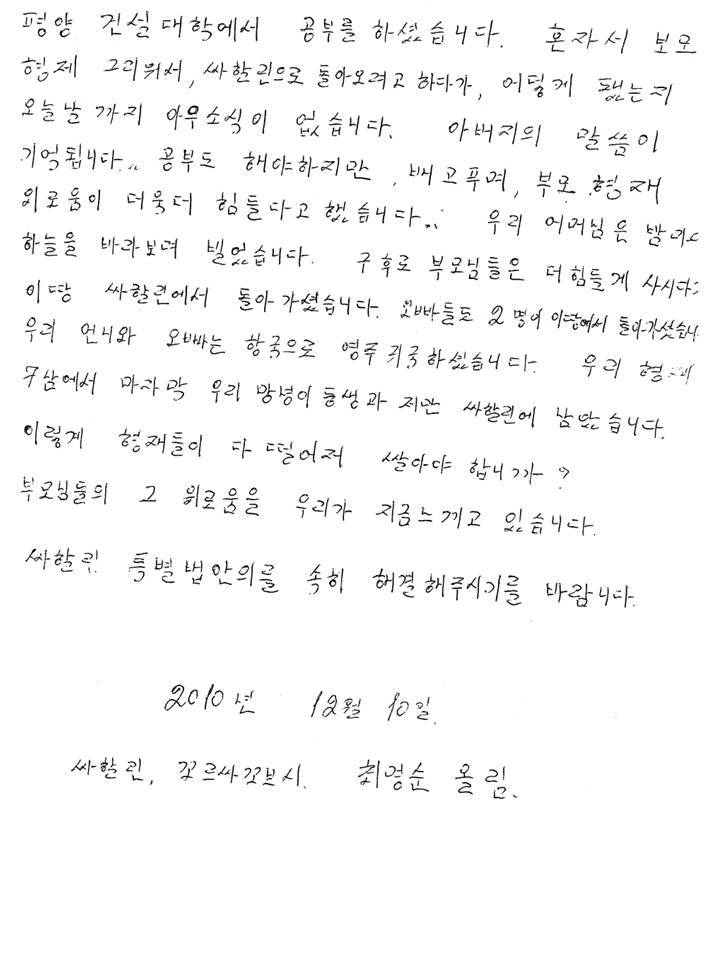 평양 건설대학에서 공부를 하셨습니다. 혼자서 보모
형제 그리워서, 싸할린으로 돌아오려고 하다가, 어떻게 됐는지
오늘날까지 아무소식이 없습니다. 아버지의 말씀이
기억됩니다.. 공부도 해야하지만, 배고푸며, 부모 형재
외로움이 더욱더 힘들다고 했습니다.. 우리 어머님은 밤마다
하늘을 바라보며 빌었습니다. 구후로 부모님들은 더 힘들게 사시다가
이땅 싸할린에서 돌아가셨습니다. 오빠들도 2명이 이땅에서 돌아가셧습니
우리 언니와 오빠는 항국으로 영주귀국하싰습니다. 우리 형재
7삼에서 마자막 우리 망녕이 동생과 지만 싸할린에 남았습니다.
이렇게 형재들이 다 떨어저 쌀아야 합니까?
부모님들의 그 외로움을 우리가 지금느끼고 있습니다.
싸할린 특별법안의를 속히 해결해주시기를 바람니다.
2010년 12월 10일.
싸할린, 꼬르싸꼬브시. 최영순 올림.